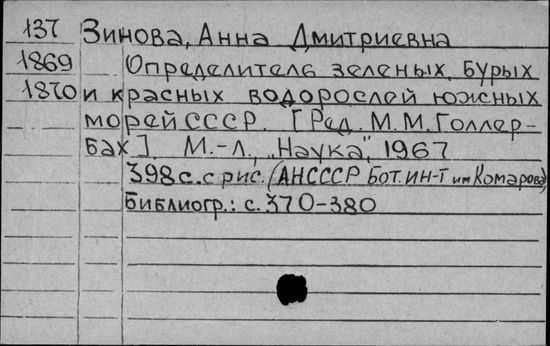 137 Зинова, Анна Дмитриевна
1869 Определитель зеленых, бурых
1870 и красных водорослей южных
морей СССР. [Ред. М.М. Голлер-
бах]. М.-Л., „Наука", 1967
398 с. с рис. (АНСССР Бот. ин-т им Комарова)
Библиогр.: с. 370-380